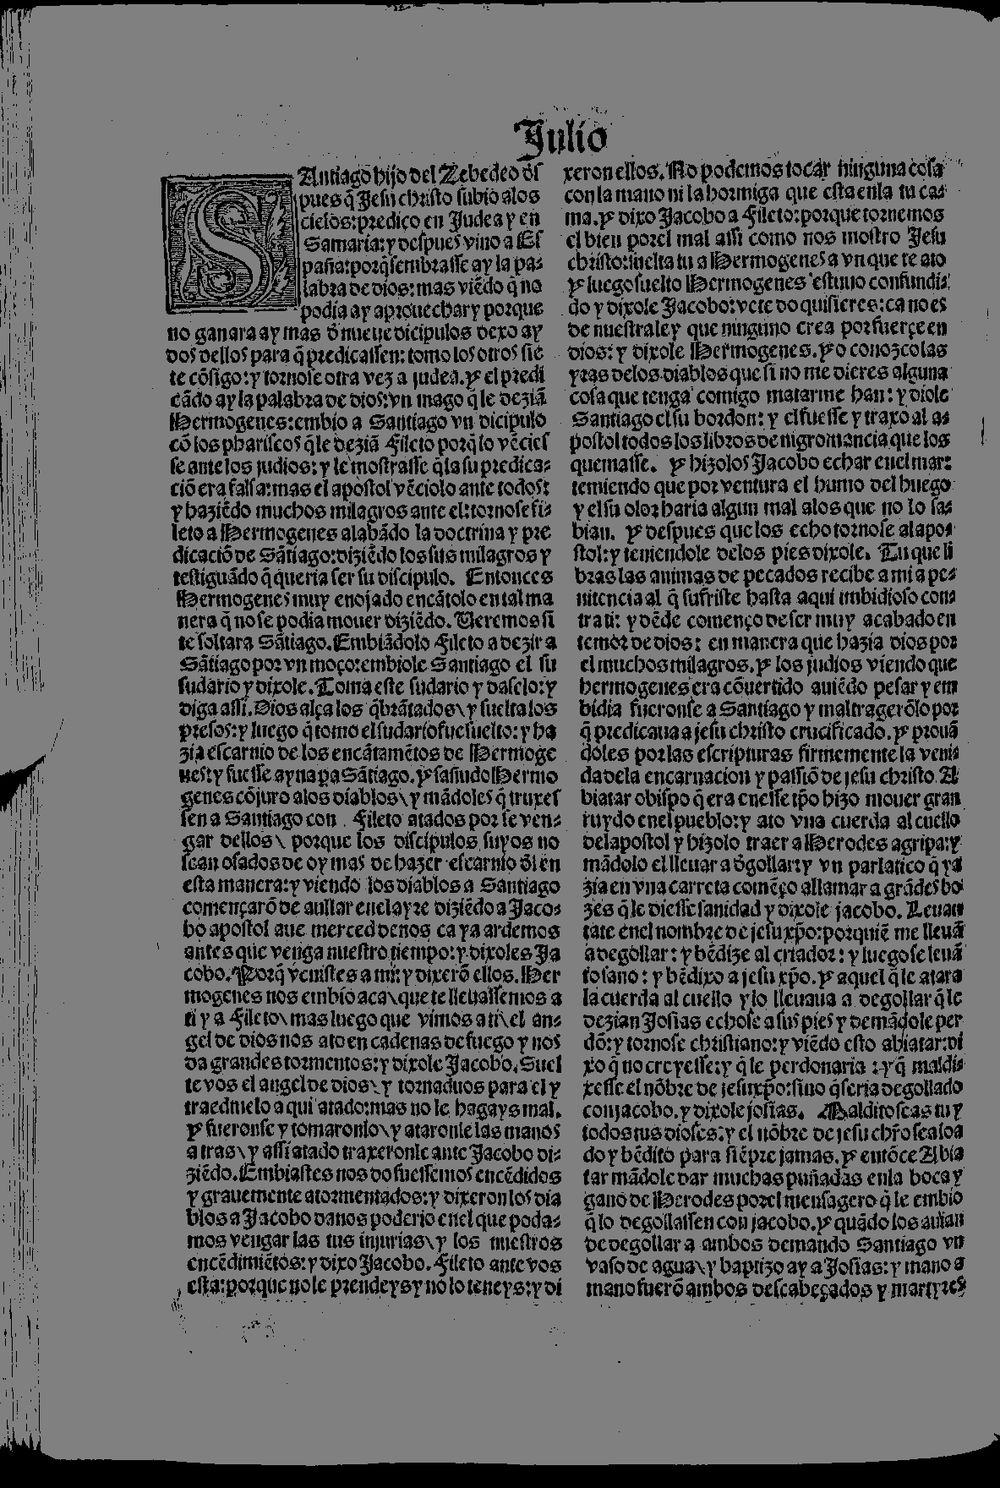 Julio
SAntiago hijo del Zebedeo des
pues q̄ Jesu christo subio alos
cielos: predico en Judea y en
Samaria: y despues vino a Es
paña: porq̄ sembrasse ay la pa-
labra de dios: mas viēdo q̄ no
podia ay aprouechar y porque
no ganara ay mas d̄ nueue dicipulos dexo ay
dos dellos para q̄ predicassen: tomo los otros sie
te cōsigo: y tornose otra vez a judea. Y el predi
cādo ay la palabra de dios: vn mago q̄ le deziā
Hermogenes: embio a Santiago vn dicipulo
cō los phariseos q̄ le deziā Fileto porq̄ lo vēcies
se ante los judios: y le mostrasse q̄ la su predica-
ciō era falsa: mas el apostol vēciolo ante todos:
y haziēdo muchos milagros ante el: tornose fi-
leto a Hermogenes alabādo la doctrina y pre
dicaciō de Sātiago: diziēdo los sus milagros y
testiguādo q̄ queria ser su discipulo. Entonces
Hermogenes muy enojado encātolo en tal ma
nera q̄ no se podia mouer diziēdo. Veremos si
te soltara Sātiago. Embiādolo Fileto a dezir a
Sātiago por vn moço: embiole Santiago el su
sudario y dixole. Toma este sudario y daselo: y
diga assi. Dios alça los q̄brātados\ y suelta los
presos: y luego q̄ tomo el sudario fue suelto: y ha
zia escarnio de los encātamētos de Hermoge
nes: y fuesse ayna pa Sātiago. Y sañudo Hermo
genes cōjuro alos diablos\ y mādoles q̄ truxes
sen a Santiago con Fileto atados por se ven-
gar dellos\ porque los discipulos suyos no
sean osados de oy mas de hazer escarnio d̄l en
esta manera: y viendo los diablos a Santiago
començarō de aullar enel ayre diziēdo a Jaco-
bo apostol aue merced de nos ca ya ardemos
antes que venga nuestro tiempo: y dixoles Ja
cobo. Porq̄ venistes a mi: y dixerō ellos. Her
mogenes nos embio aca\ que te lleuassemos a
ti y a Fileto\ mas luego que vimos a ti\ el an-
gel de dios nos ato en cadenas de fuego y nos
da grandes tormentos: y dixole Jacobo. Suel
te vos el angel de dios\ y tornaduos para el y
traedmelo aqui atado: mas no le hagays mal.
Y fueronse y tomaronlo\ y ataronle las manos
a tras\ y assi atado traxeronle ante Jacobo di-
ziēdo. Embiastes nos do fuessemos encēdidos
y grauemente atormentados: y dixeron los dia
blos a Jacobo danos poderio enel que poda-
mos vengar las tus injurias\ y los nuestros
encēdimiētos: y dixo Jacobo. Fileto ante vos
esta: porque no le prendeys y no lo teneys: y di
xeron ellos. No podemos tocar ninguna cosa
con la mano ni la hormiga que esta enla tu ca-
ma. Y dixo Jacobo a Fileto: porque tornemos
el bien por el mal assi como nos mostro Jesu
christo: suelta tu a Hermogenes a vn que te ato
Y luego suelto Hermogenes estuuo confundi-
do y dixole Jacobo: vete do quisieres: ca no es
de nuestra ley que ninguno crea por fuerçe en
dios: y dixole Hermogenes. Yo conozco las
yras delos diablos que si no me dieres alguna
cosa que tenga comigo matarme han: y diole
Santiago el su bordon: y el fuesse y traxo al a-
postol todos los libros de nigromancia que los
quemasse. Y hizolos Jacobo echar enel mar:
temiendo que por ventura el humo del huego
y el su olor haria algun mal alos que no lo sa-
bian. Y despues que los echo tornose al apos-
stol: y teniendole delos pies dixole. Tu que li
bras las animas de pecados recibe a mi a pe-
nitencia al q̄ sufriste hasta aqui imbidioso con-
tra ti: y dēde començo de ser muy acabado en
temor de dios: en manera que hazia dios por
el muchos milagros. Y los judios viendo que
hermogenes era cōuertido auiēdo pesar y em
bidia fueronse a Santiago y maltragerōlo por
q̄ predicaua a jesu christo crucificado. Y prouā
doles por las escripturas firmemente la veni-
da dela encarnacion y passiō de jesu christo. A
biatar obispo q̄ era enesse tp̄o hizo mouer gran
ruydo enel pueblo: y ato vna cuerda al cuello
del apostol y hizolo traer a Herodes agripa: y
mādolo el lleuar a d̄gollar: y vn parlatico q̄ ya
zia en vna carreta comēço a llamar a grādes bo
zes q̄ le diesse sanidad y dixole jacobo. Leuan
tate enel nombre de jesu xp̄o: porquiē me lleuā
a degollar: y bēdize al criador: y luego se leuā
to sano: y bēdixo a jesu xp̄o. Y aquel q̄ le atara
la cuerda al cuello y lo lleuaua a degollar q̄ le
dezian Josias echose a sus pies y demādole per
dō: y tornose christiano: y viēdo esto abiatar: di
xo q̄ no creyesse: y q̄ le perdonaria: y q̄ maldi-
xesse el nōbre de jesu xp̄o: sino q̄ seria degollado
con jacobo. y dixole josias. Maldito seas tu y
todos tus dioses: y el nōbre de jesu chr̄o sea loa
do y bēdito para siēpre jamas. Y entōce Abia
tar mādole dar muchas puñadas enla boca y
gano de Herodes por el mensagero q̄ le embio
q̄ lo degollassen con jacobo. Y quādo los auian
de degollar a ambos demando Santiago vn
vaso de agua\ y baptizo ay a Josias: y mano a
mano fuerō ambos descabeçados y martyres